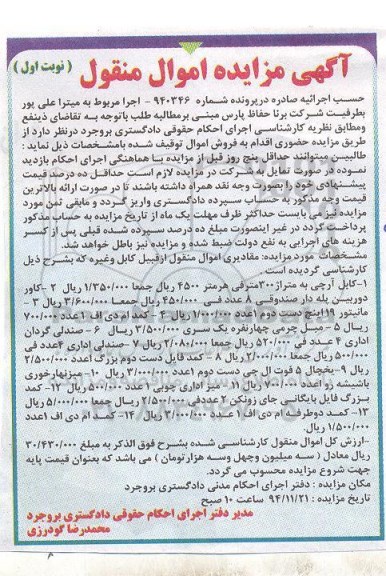 آگهی مزایده اموال منقول ( نوبت اول )
حسب اجرائیه صادره در پرونده شماره ۹۴۰۳۴۶ - اجرا مربوط به میترا علی پور
بطرفیت شرکت برنا حفاظ پارس مبنی بر مطالبه طلب باتوجه به تقاضای ذینفع
ومطابق نظریه کارشناسی اجرای احکام حقوقی دادگستری بروجرد درنظر دارد از
طریق مزایده حضوری اقدام به فروش اموال توقیف شده بامشخصات ذیل نماید :
طالبین میتوانند حداقل پنج روز قبل از مزایده با هماهنگی اجرای احکام بازدید
نموده در صورت تمایل به شرکت در مزایده لازم است حداقل ده درصد قیمت
پیشنهادی خود را بصورت وجه نقد همراه داشته باشند تا در صورت ارائه بالاترین
قیمت وجه مذکور به حساب سپرده دادگستری واریز گردد و مابقی ثمن مورد
مزایده نیز می بایست حداکثر ظرف مهلت یک ماه از تاریخ مزایده به حساب مذکور
پرداخت گردد در غیر اینصورت مبلغ ده درصد سپرده شده قبلی پس از کسر
هزینه های اجرایی به نفع دولت ضبط شده و مزایده نیز باطل خواهد شد.
مشخصات مورد مزایده: مقادیری اموال منقول ازقبیل کابل وغیره که بشرح ذیل
کارشناسی گردیده است.
۱-کابل آرچی به متراژ ۳۰۰مترفی هرمتر ۴۵۰۰ ریال جمعا ۱/۳۵۰/۰۰۰ ریال ۲ -کاور
دوربین پله دار صندوقی ۸ عدد فی ۴۵۰/۰۰۰ ریال جمعا ۳/۶۰۰/۰۰۰ ریال ۳ -
مانیتور ۱۷اینچ دست دوم ۱عدد ۱/۰۰۰/۰۰۰ ریال ۴ - کمد ام دی اف ۱عدد ۷۰۰/۰۰۰
ریال ۵ -مبل چرمی چهارنفره یک سری ۳/۵۰۰/۰۰۰ ریال ۶ - صندلی گردان
اداری ۴ عدد فی ۵۲۰/۰۰۰ ریال جمعا ۲/۰۸۰/۰۰۰ ریال ۷- صندلی اداری ۴عدد فی
۵۰۰/۰۰۰ ریال جمعا ۲/۰۰۰/۰۰۰ ریال ۸- کمد فایل دست دوم بزرگ ۱عدد ۲/۵۰۰/۰۰۰
ریال ۹-یخچال ۵ فوت ال جی دست دوم ۱عدد ۳/۰۰۰/۰۰۰ ریال ۱۰- میزنهارخوری
باشیشه رو ۱عدد ریال ۱۱- میز اداری چوبی ۱عدد ۵۰۰/۰۰۰ ریال ۱۲- کمد
بزرگ فایل بایگانی جای زونکن ۲عددفی ۲/۵۰۰/۰۰۰ ریال جمعا ۵/۰۰۰/۰۰۰ ریال
۱۳- کمد دوطرفه ام دی اف ۱ عدد ۲/۰۰۰/۰۰۰ ریال ۱۴- کمد ام دی اف ۱عدد
۱/۵۰۰/۰۰۰ ریال.
-ارزش کل اموال منقول کارشناسی شده بشرح فوق الذکر به مبلغ ۳۰/۴۳۰/۰۰۰
ریال معادل ( سه میلیون وچهل وسه هزارتومان ) می باشد که بعنوان قیمت پایه
جهت شروع مزایده محسوب می گردد.
مکان مزایده : دفتر اجرای احکام مدنی دادگستری بروجرد
تاریخ مزایده : ۹۴/۱۱/۲۱ ساعت ۱۰ صبح
مدیر دفتر اجرای احکام حقوقی دادگستری بروجرد
محمدرضا گودرزی